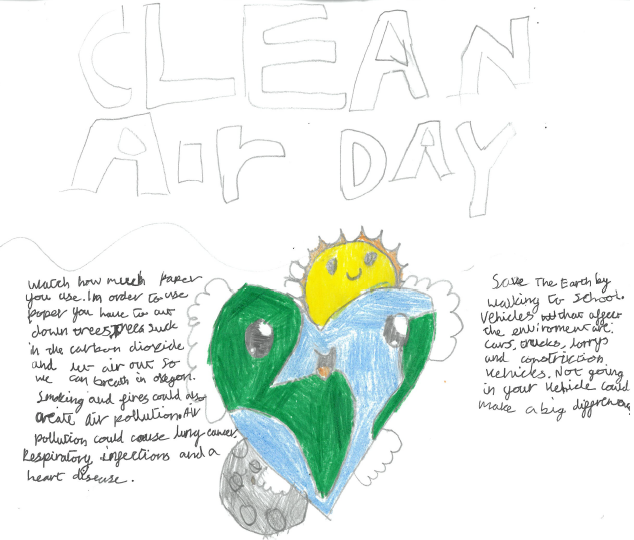 CLEAN
Air DAY
Watch how much Paper
you use. In order to use
paper you have to cut
down trees. Trees suck
in the carbon dioxide
and let air out so
we can breath in oxegon.
Smoking and fires could also
create air pollution. Air
pollution could couse lung cancer,
Respiratory infections and a
heart disease.
Save The Earth by
walking to School.
Vehicles that affect
the enviroment are:
cars, trucks, lorrys
and constriction
vehicles. Not going
in your Vehicle could
make a big difference